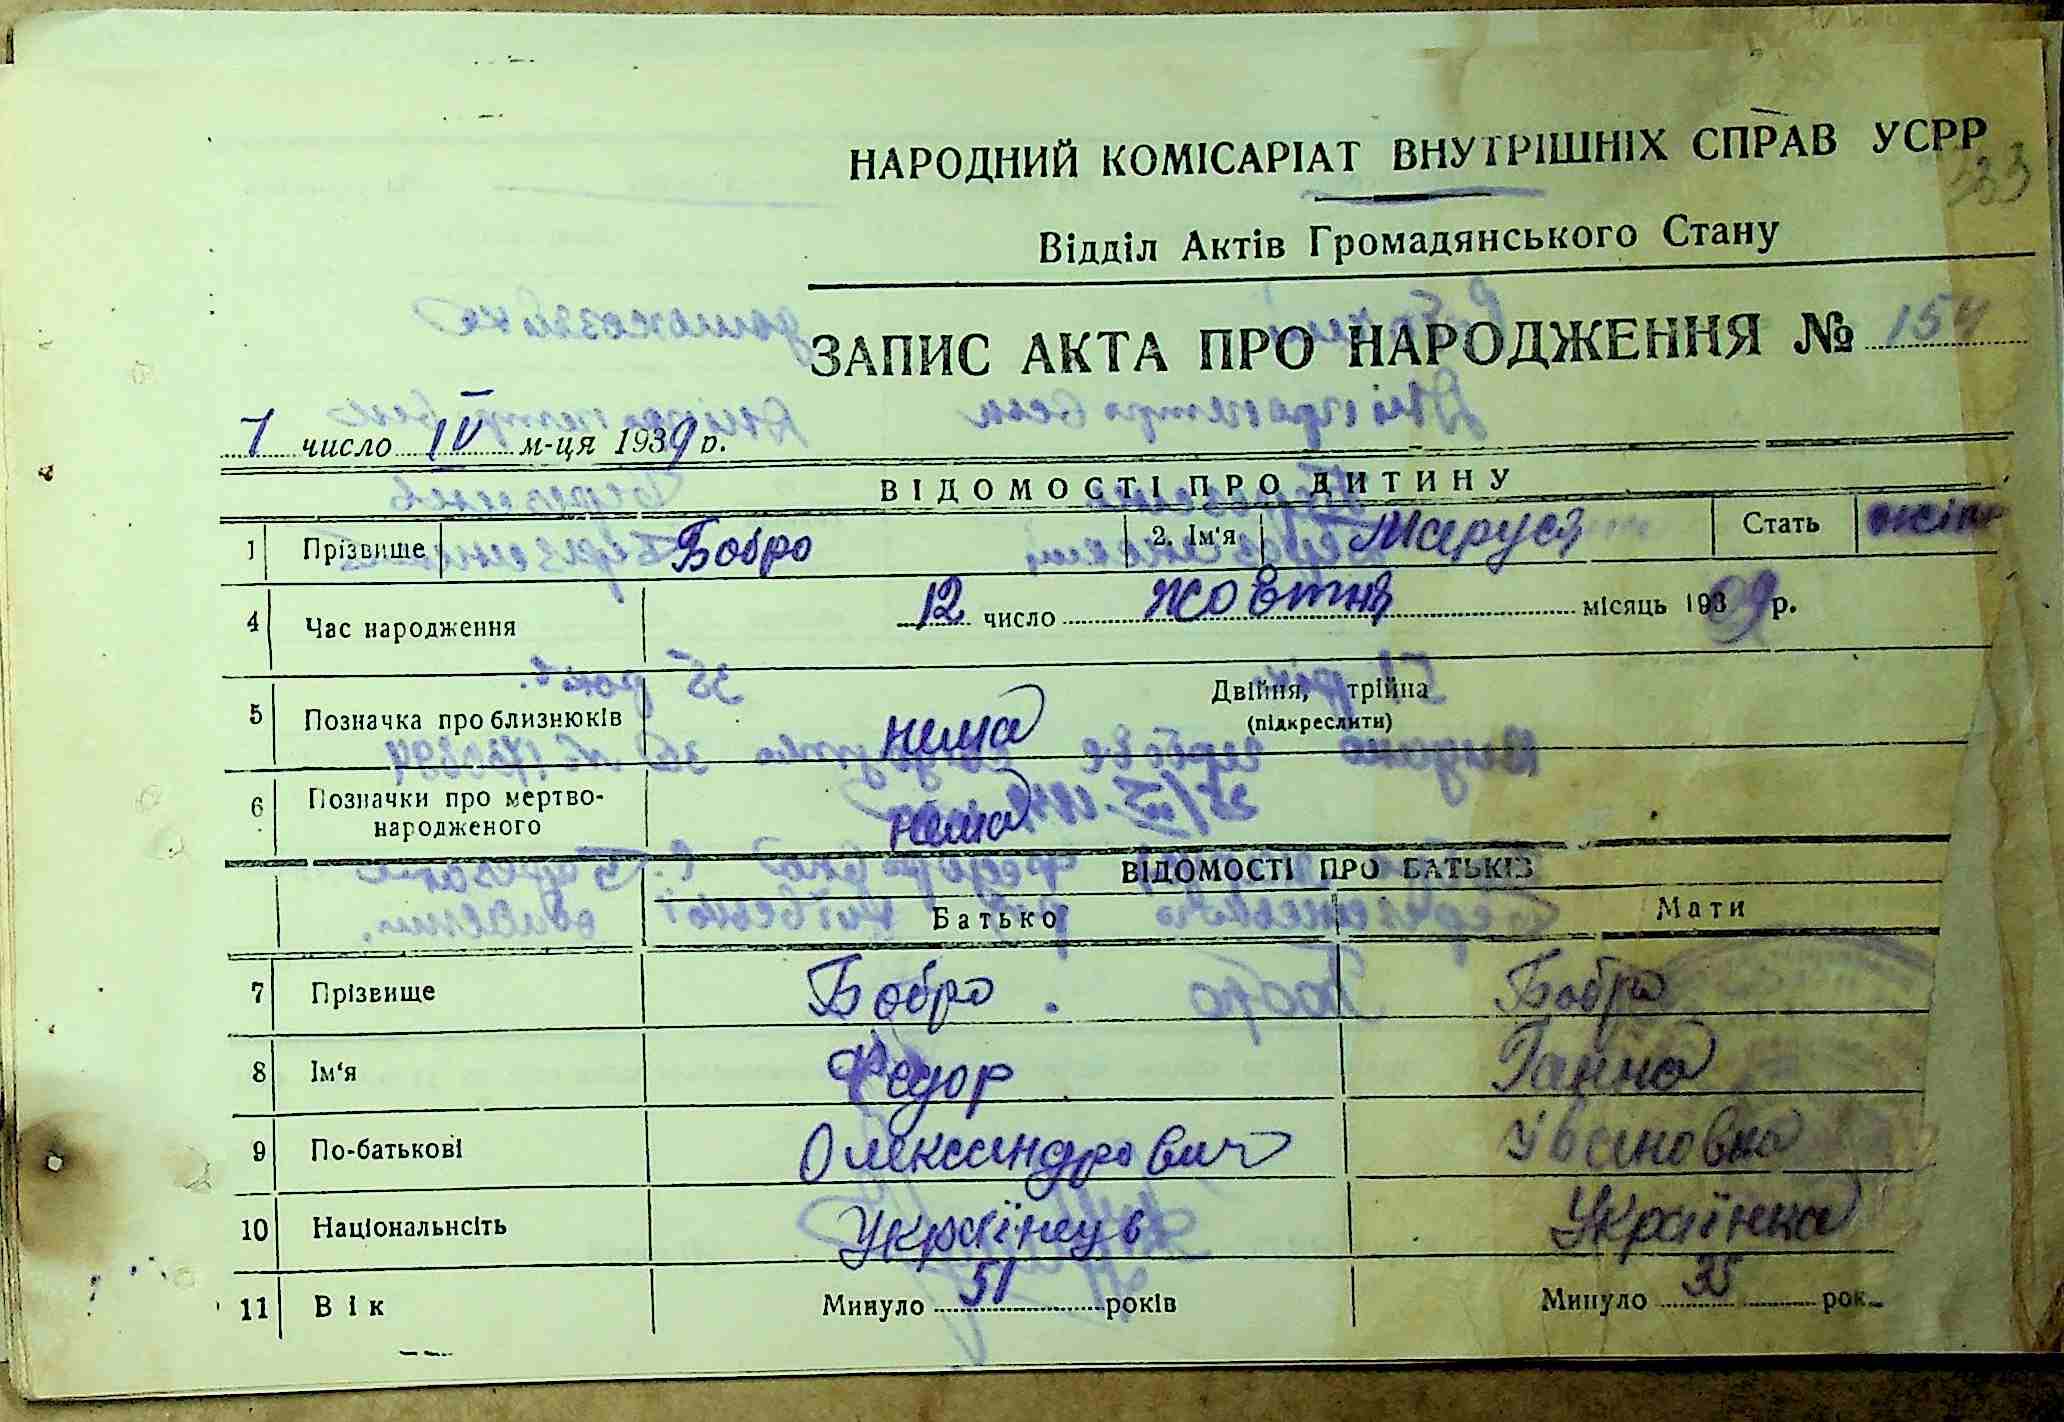 НАРОДНИЙ КОМІСАРІАТ ВНУТРІШНІХ СПРАВ УСРР
333
Відділ Актів Громадянського Стану
ЗАПИС АКТА ПРО НАРОДЖЕННЯ № 154
7 число IV м-ця 1939 р.
ВІДОМОСТІ ПРО ДИТИНУ
1 Прізвище Бобро 2. Ім'я Маруся Стать жіно
4 Час народження 12 число жовтня місяць 1939 р.
5 Позначка про близнюків нема Двійня, трійна
(підкреслити)
6 Позначки про мертво-
народженого нема
ВІДОМОСТІ ПРО БАТЬКІВ
Батько Мати
7 Прізвище Бобро Бобро
8 Ім'я Федор Ганна
9 По-батькові Олександрович Ивановна
10 Національнсіть Українець Українка
11 Вік Минуло 51 років Минуло 35 рок